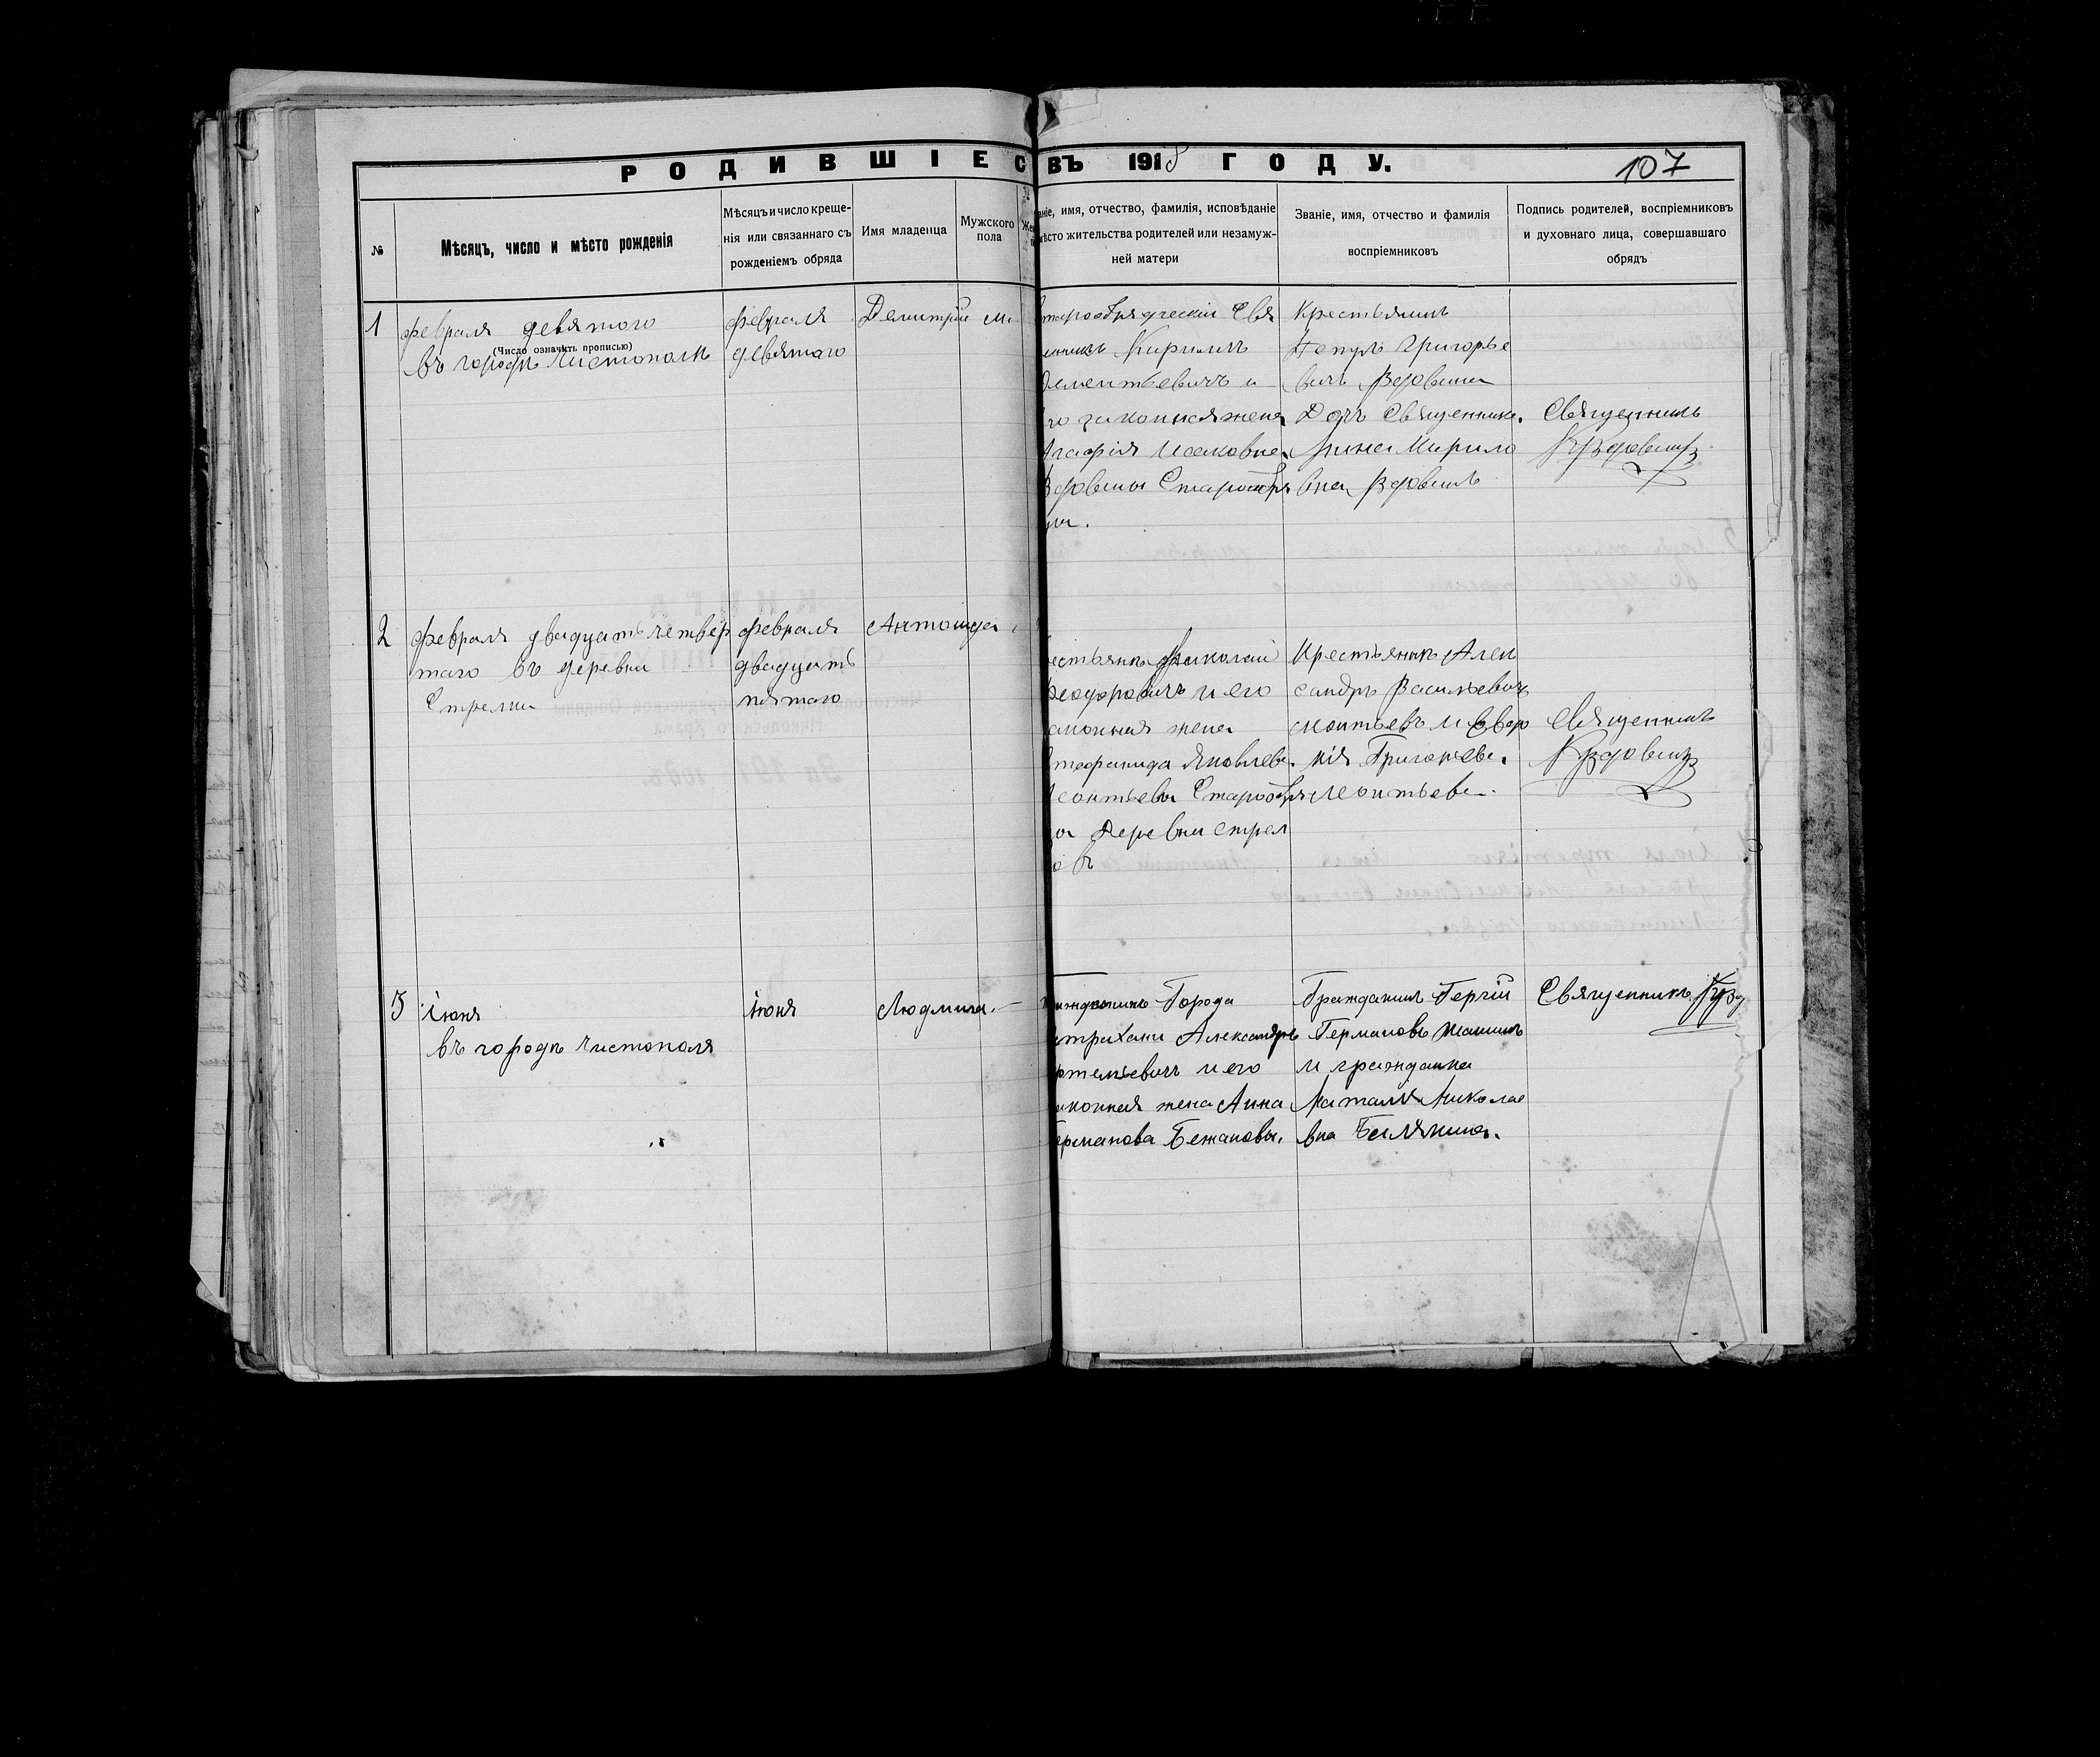 РОДИВШІЕС ВЪ 1918 ГОДУ.
107
№
Мѣсяцъ, число и мѣсто рожденія
Мѣсяцъ и число креще-
нія или связаннаго съ
рожденіемъ обряда
Имя младенца
Мужского
пола
аніе, имя, отчество, фамилія, исповѣданіе
ѣсто жительства родителей или незамуж-
ней матери
Званіе, имя, отчество и фамилія
воспріемниковъ
Подпись родителей, воспріемниковъ
и духовнаго лица, совершавшаго
обрядъ
1
февраля девятого
(Число означить прописью)
въ городѣ Чистополѣ
февраля
девятого
Димитрій м.
тарообрядческій Свя
енникъ Кирилъ
Дементьевичъ и
го законная жена
Агафія Исаковна
Вдовины Старообря
цы.
Крестьянинъ
Петръ Григорье
вичъ Вдовинъ
Дочъ Священника
Анна Кирило
вна Вдовинъ
Священникъ
К Вдовинъ
2
февраля двадцать четвер
таго въ деревни
Стрелки
февраля
двадцать
пятаго
Антонида
естьянинъ Николай
Феодоровичъ и его
аконная жена
Стефанида Яковлева
Леонтьевы Старообря
цы Деревни стрел
о въ
Крестьянинъ Алек
сандръ Васильевичъ
Леонтьевъ и Евге
нія Григорьева
Леонтьева
Священникъ
К Вдовинъ
3
іюня
въ городѣ чистополя
іюня
Людмила.
ажданинъ Города
страхани Александръ
ртемьевичъ и его
аконная жена Анна
Германова Бежановы.
Гражданинъ Гергій
Германовъ
и гражданка
Наталія Николае
вна Билякина.
Священникъ К Вд